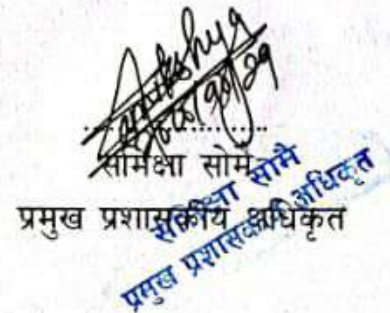 ..................
सामिक्षा सोमै
प्रमुख प्रशासकीय अधिकृत
समिक्षा सोमै
प्रमुख प्रशासकीय अधिकृत